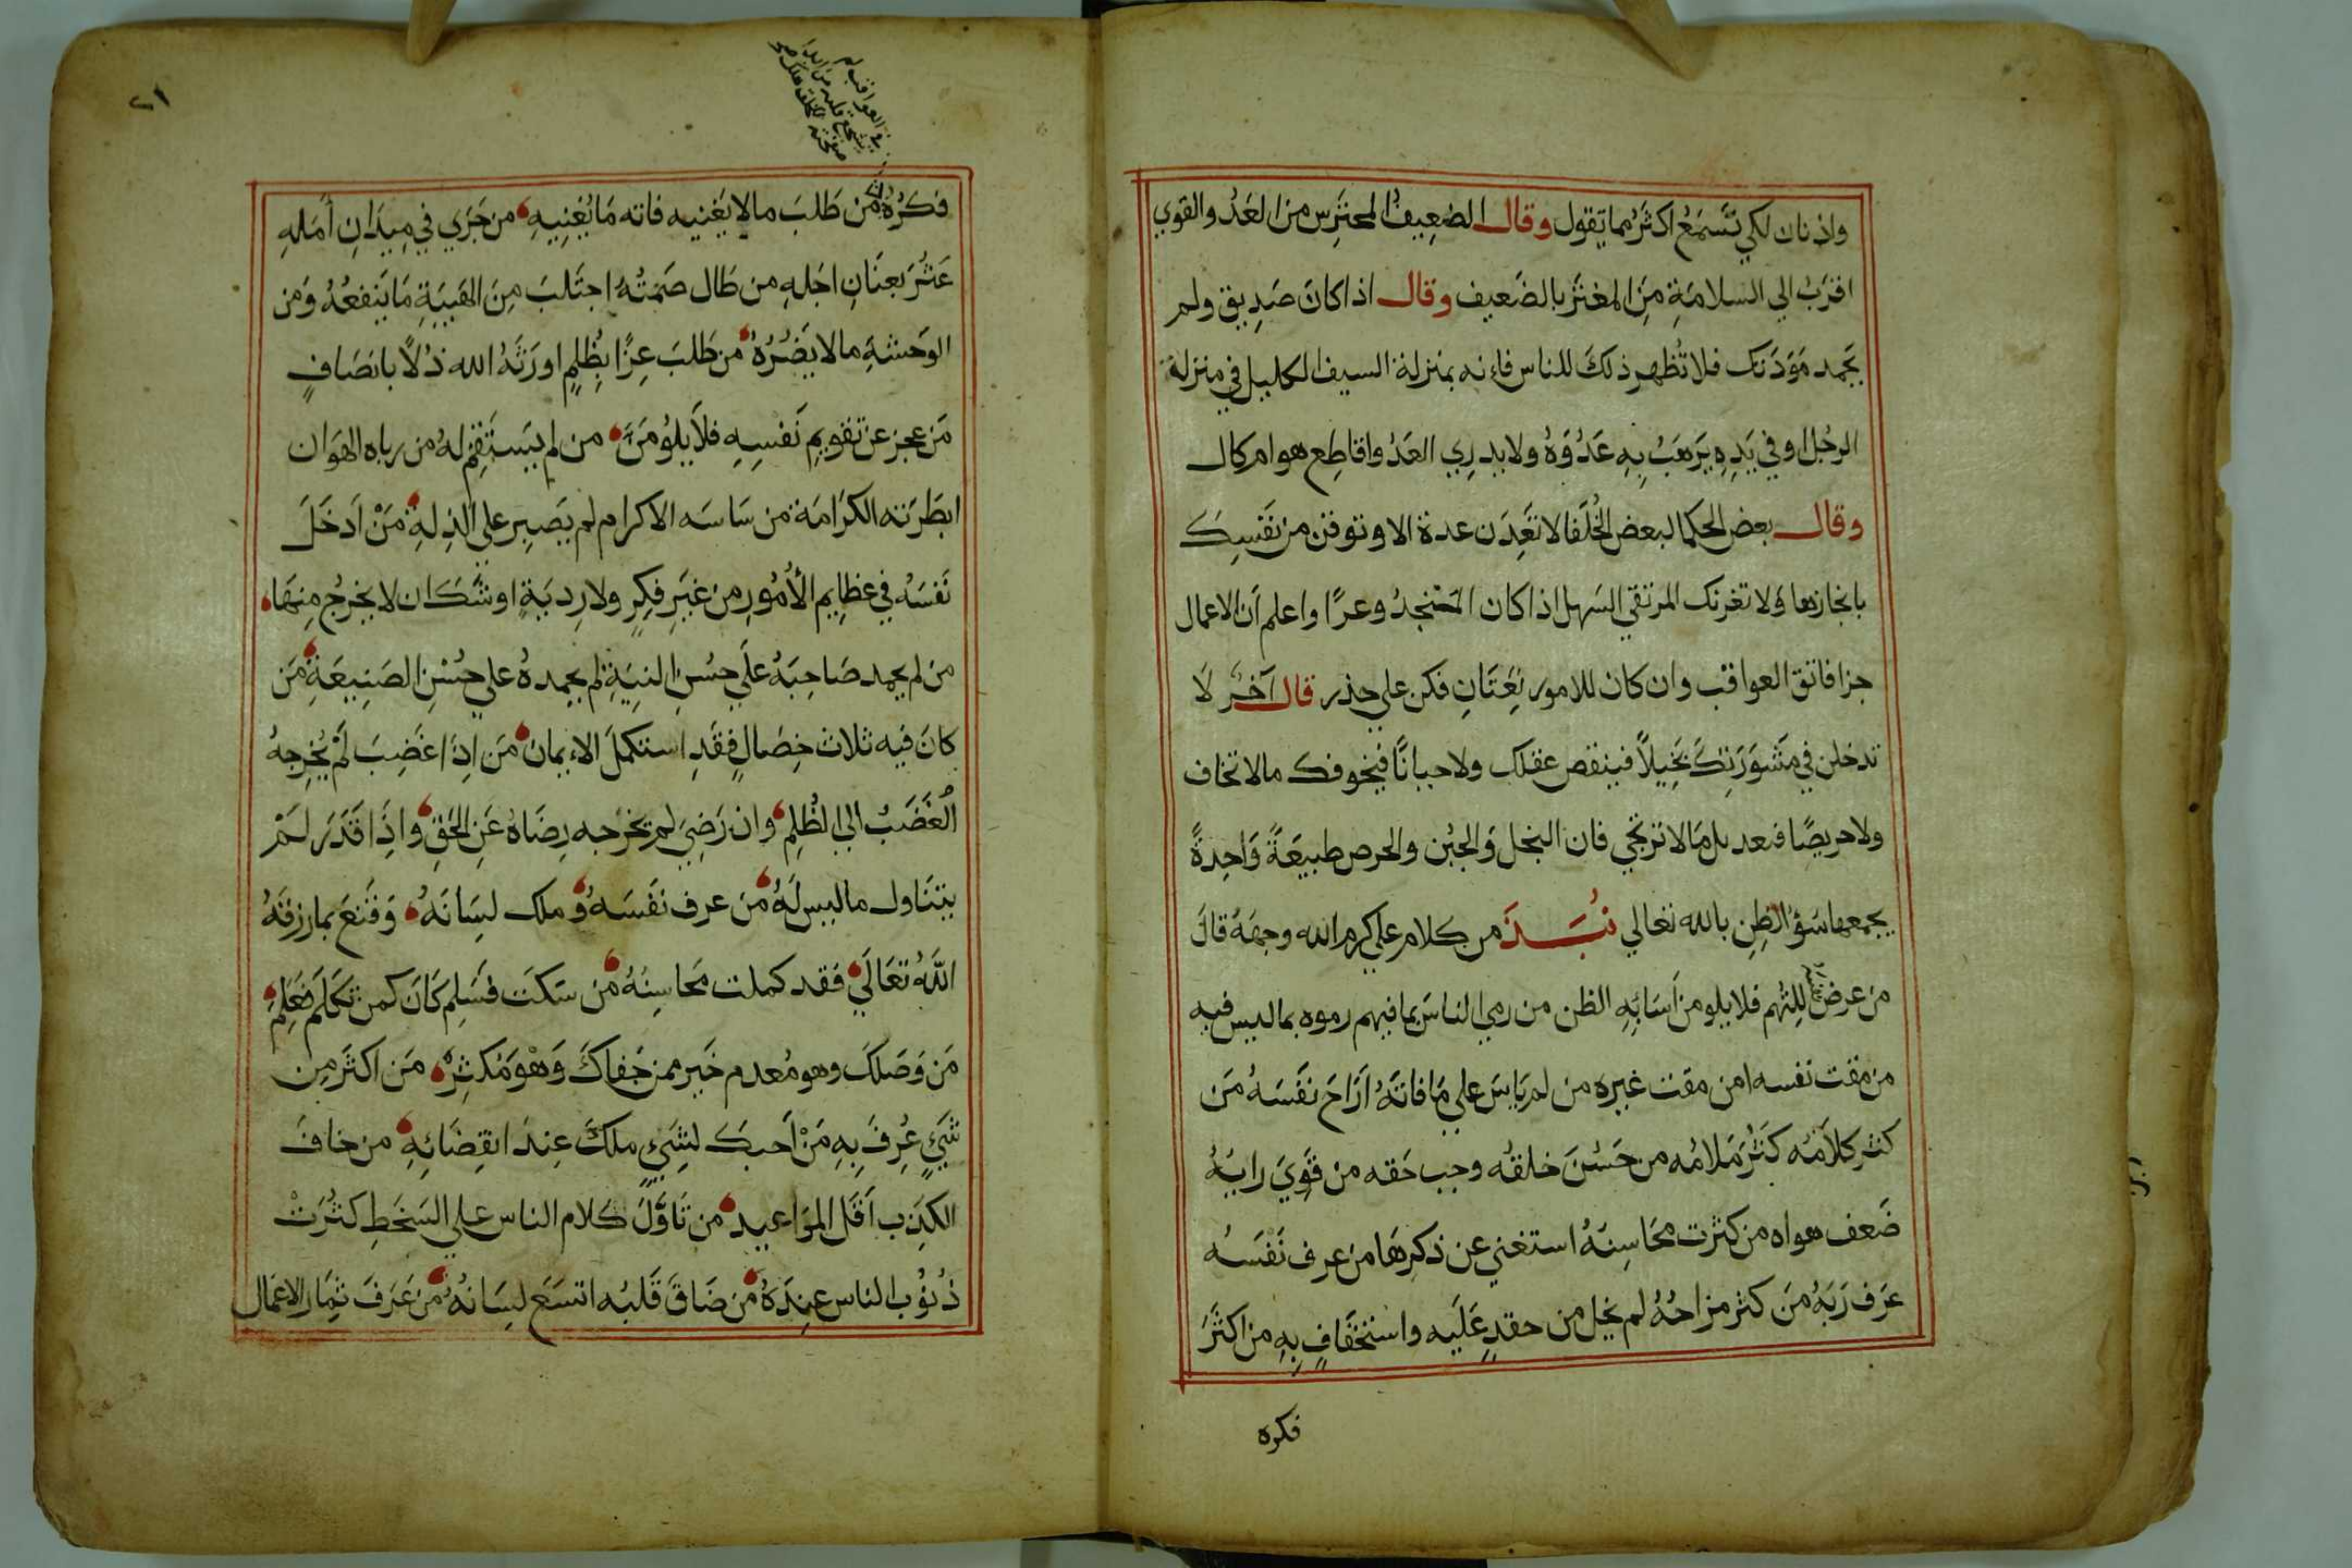 واذنان لكي تَسمَعُ اكثَرُ مما تقول وقال الضعِيفُ المحترس من العَدُ والقوي
اقرَبُ الي السلامَةِ مِنَ المغتَرُ بالضَعيف وقال اذا كانَ صَدِيق ولم
يَحمد مَوَدَتك فلا تُظهِر ذلكَ للناس فاءنه بمنزلة السيف الكليل في منزلة
الرجُل او في يَدِهِ يَرهَبُ بِهِ عَدُوَهُ ولا يدرِي العَدُ واقاطِع هو ام كال
وقال بعض الحكما لبعض الخُلَفا لا تَعِدَن عدة الا وتوقن من نَفسِكَ
بانجازها وَلا تغرنك المرتقي السَهل اذا كان المُنْحَدَرُ وعرًا واعلم اَن الاعمال
جزا فاتق العواقب وان كان للامور بَغَتَانٍ فكن علي حذر قال آخَرُ لَا
تدخلن في مَشوَرَتِكَ بَخِيلاً فينقص عقلك ولا جبانًا فيخوفك مالا تخاف
ولا حريصًا فيعد بك مَالا تَرتَجي فان البخل وَالجبُن والحرص طبيعَةً وَاحِدةً
يجمعها سَؤُ الظِنِ بالله تعالي نُبَذَ من كلام علي كرم الله وجهَهُ قالَ
من عرض نفسه لِلتُهم فلا يلومن اَسَائِهِ الظن من رمي الناسَ بما فيهم رموه بما ليس فيه
من مقت نفسه امن مقت غيره من لم ياسَ علي مَا فاتَهُ اَرَاحَ نفَسَهُ مَن
كثر كلاَمُه كَثُرَ مَلامُه من حَسُنَ خلقُه وجب حَقه من قَوِيَ رايُهُ
ضَعف هواه من كثرت محَاسِنهُ استغني عن ذكرِهَا من عرف نَفْسَهُ
عرَف رَبَهُ مَن كثر مزاحُهُ لم يخل من حقدٍ عَلَيه واستخفَافٍ بِهِ من اكثَرَ
فكره
٢١
في العواقب لم
يشجع قلبه من
فكَرُهُ مَن طَلبَ مالا يَغنيه فاته مَا يُغنِيهِ من جَرَي في مِيدَانِ اَمَلِهِ
عَثُرَ بعِنَانِ اجَلهِ من طَال صَمتُهُ اجتَلبَ مِنَ الهَيبَةِ مَا يَنفعُهُ وَمن
الوَحشةِ مالا يَضُرُهُ من طَلبَ عِزًا بِظُلمٍ اورَثَهُ الله ذُلًا بانصَافٍ
مَن عجز عن تقويمِ نَفسِهِ فلَا يلوُمَنَ من لم يَستَقِم لهُ من رباه الهَوَان
ابطَرَته الكَرَامَة من سَاسَه الاكرام لم يصبِر علي الذِلهِ مَنْ اَدخَلَ
نَفسَهُ في عظايم الأُمُورِ من غيَرِ فكِرٍ ولا رديَةٍ اوشَكَ ان لا يخرجُ مِنهَا
من لم يحمد صَاحِبَهُ علَي حسُنِ النيَةِ لم يحمدهُ علي حُسْنِ الصَنِيعَةِ مَن
كانَ فيه ثلاث خِصَالٍ فقَدِ استكملَ الاءيمان مَن اِذَا غَضِبَ لَمْ يُخرِجهُ
الغَضَبُ الي الظُلمِ وان رَضِيَ لم يخرجه رِضَاهُ عَنِ الحَقِ واِذَا قدَرَ لَمْ
يتنَاول ما ليس لَهُ مَن عرف نفَسَهُ وَملك لِسَانَهُ وَقَنعَ بما رزقهُ
اللَّهُ تعَالَي فَقد كملت محَاسِنُهُ مَن سَكَتَ فسَلِم كَانَ كمن تكَلَم فغَنِم
مَن وَصَلكَ وهو مُعدم خَير ممن جَفاكَ وَهْوَ مَكثِرٌ مَن اكثَرَ مِن
شَيَيٍ عُرِفَ بِهِ مَنْ اَحبكَ لشِيَيٍ ملكَ عِندَ انقِضَائِهِ من خافَ
الكِذب اَقَل المَوَاعيد من تَاوَّلَ كلام الناس علي السَخَطِ كثُرَتْ
ذُنوُب الناس عِندَهُ مَن ضَاقَ قَلبُه اتسَعَ لِسَانهُ مَن عَرَفَ ثِمَار الاعمَال